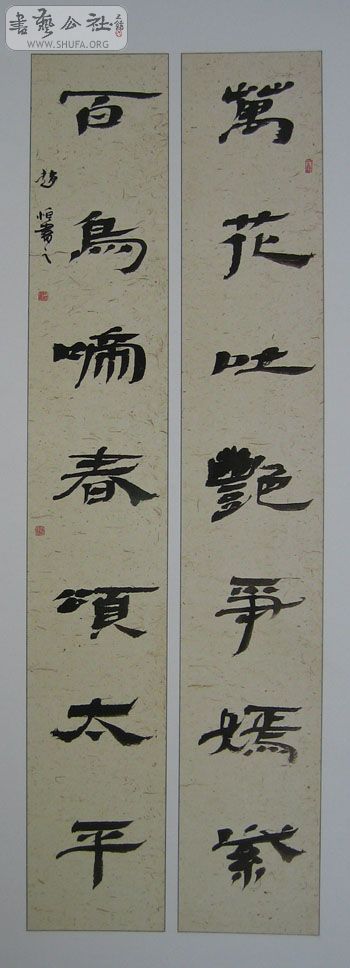 書藝公社
WWW.SHUFA.ORG
萬花吐艷爭嫣紫
百鳥啼春頌太平
趙恒